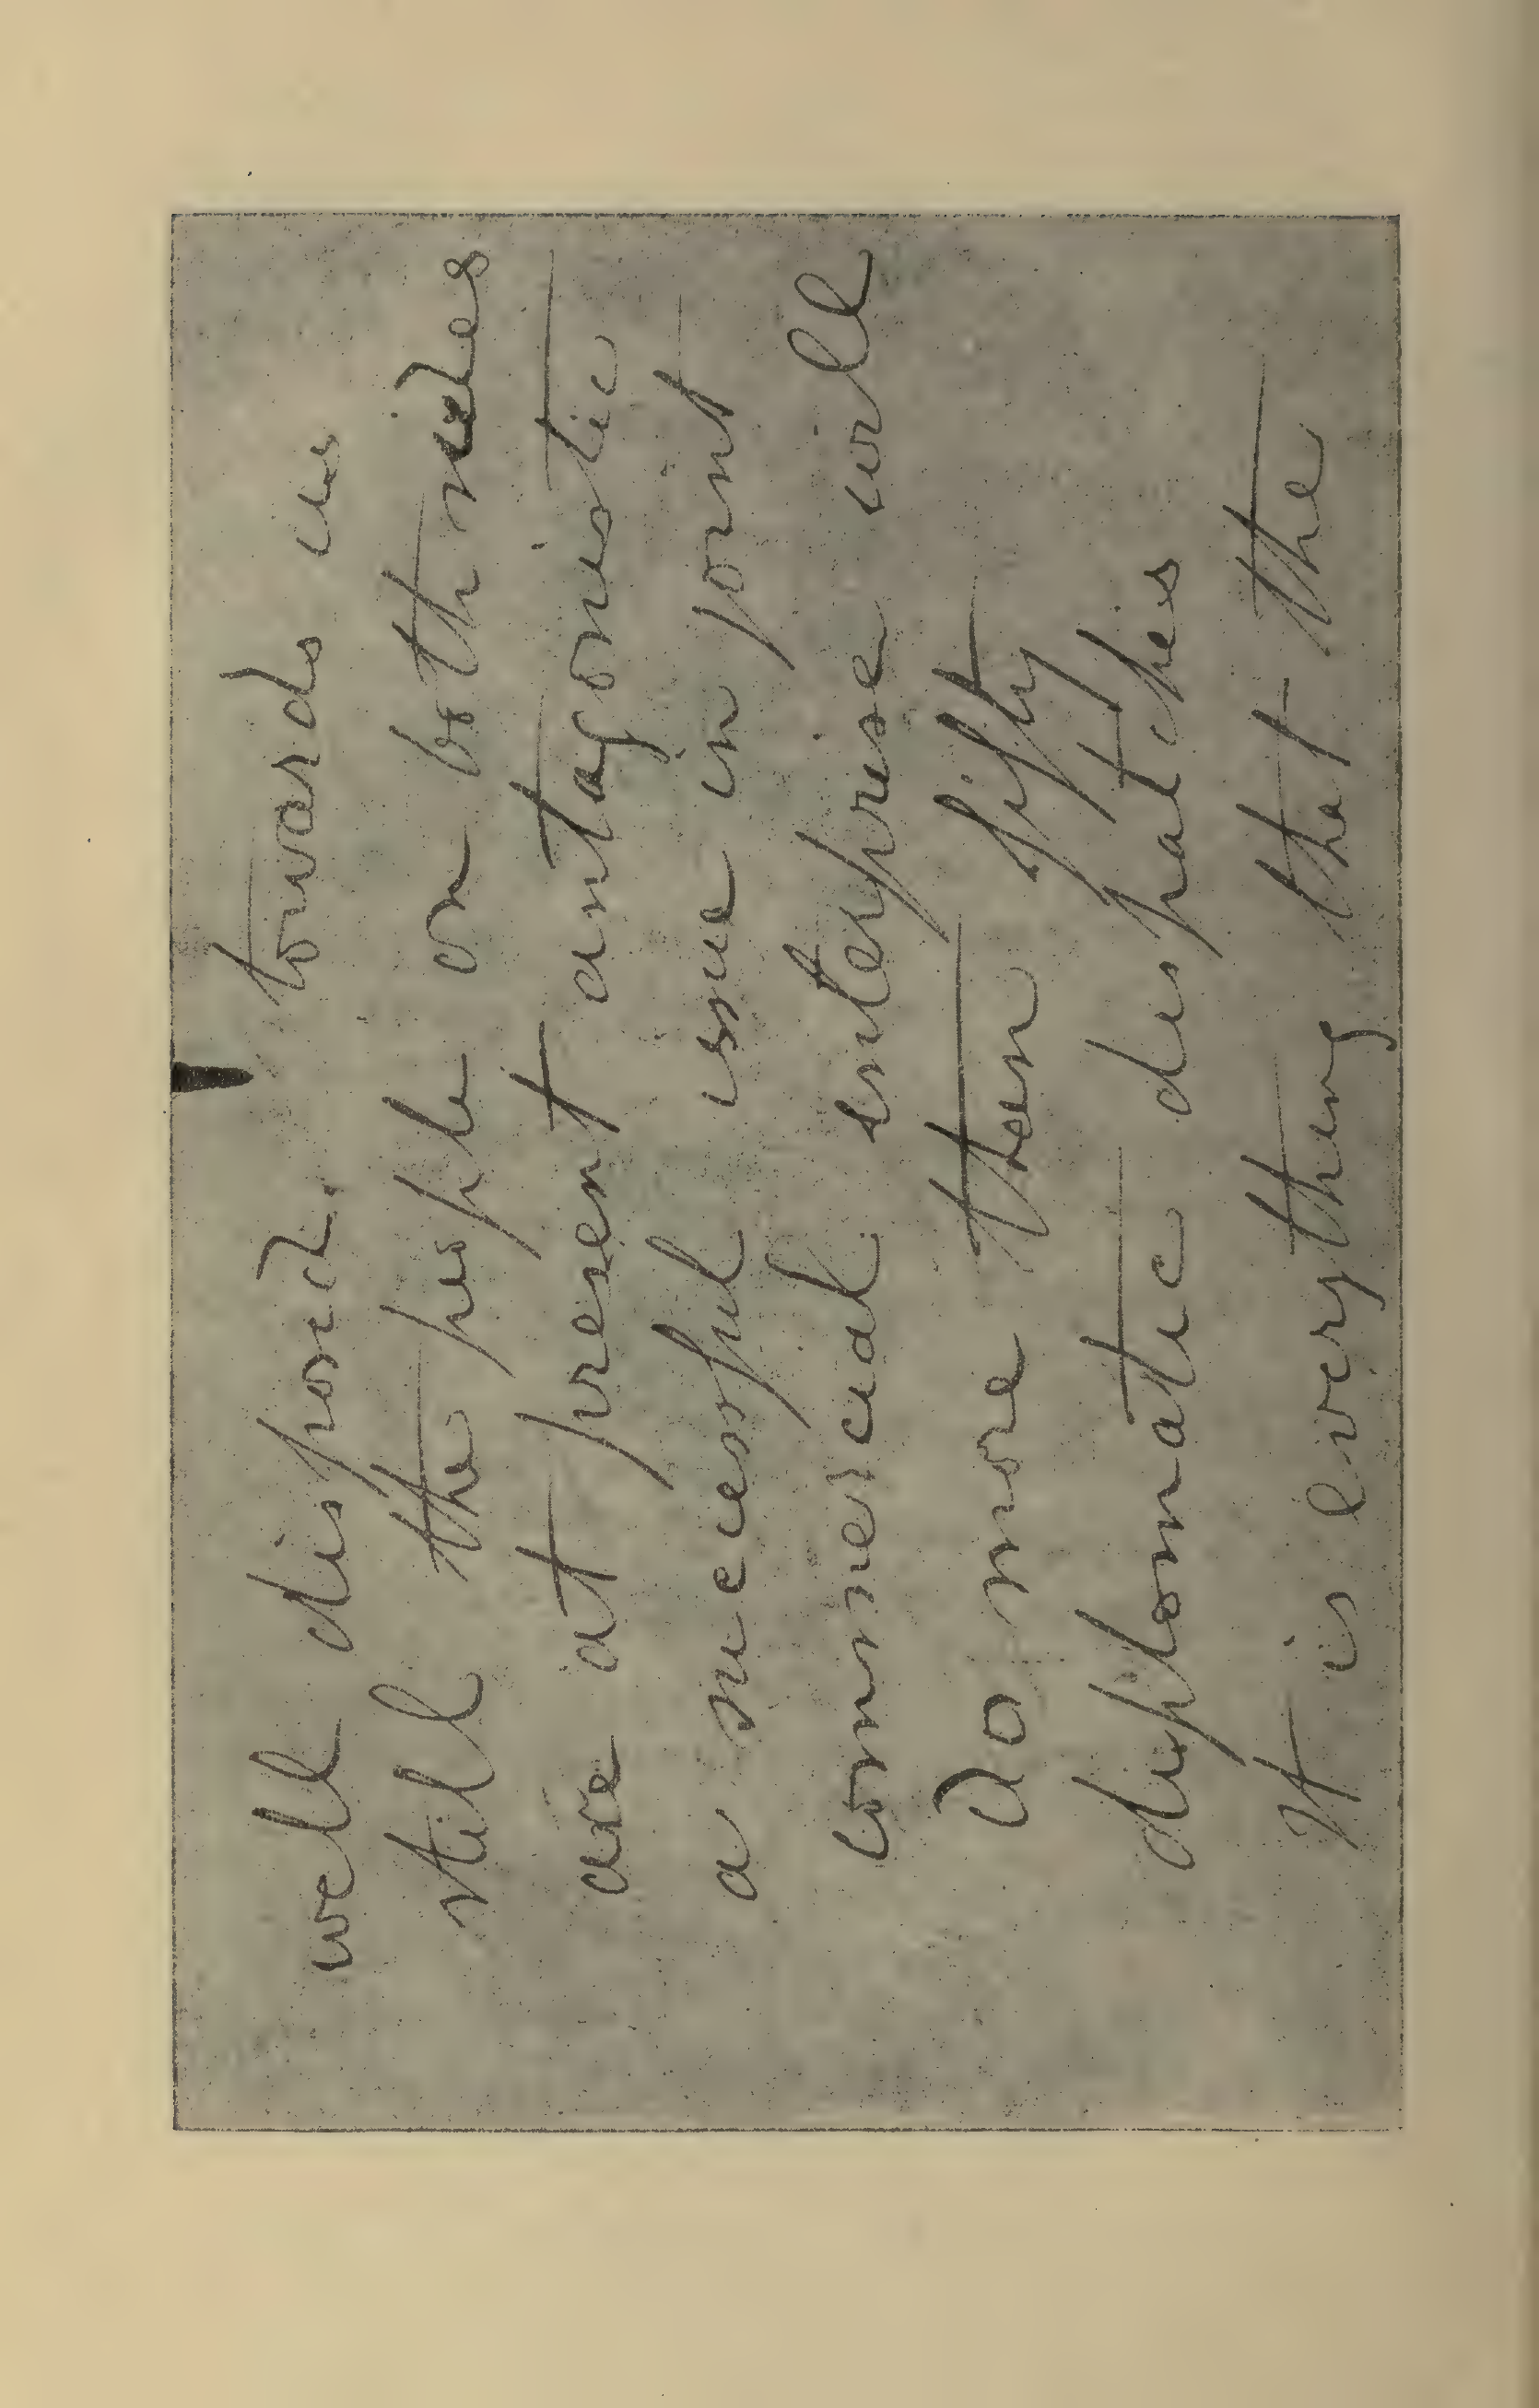 well disposed. towards us
still the people on both sides
are at present antagonistic
a successful issue in joint
commercial enterprise will
do more then fifty
diplomatic dispatches
It is everything that the